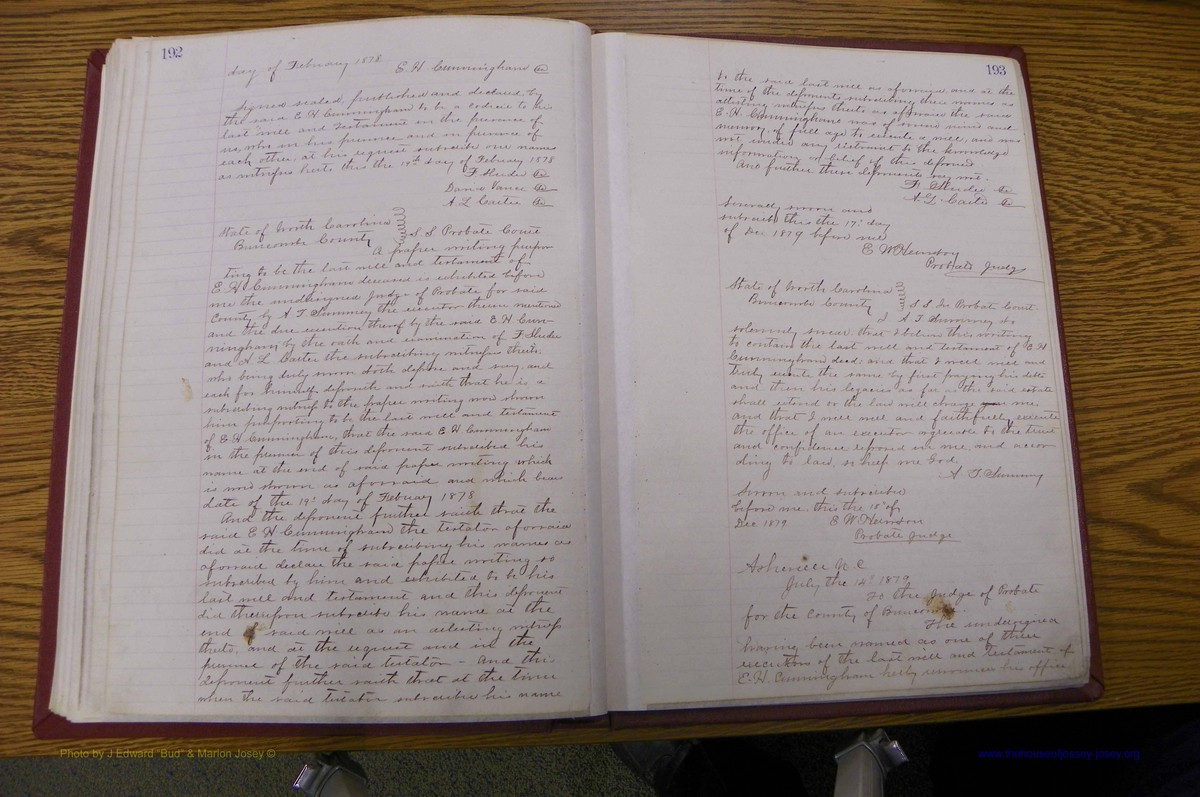 192
day of February 1878
E. H. Cunningham
signed sealed, published and declared by
the said E. H. Cunningham to be a codicil to his
last will and testament in the presence of
us, who in his presence and in presence of
each other, at his request subscribe our names
as witness hereto this the 19th day of February 1878
F. Sluder
David Vance
A. L. Carter
State of North Carolina
Buncombe County S S Probate Court
A paper writing purpor
ting to be the last will and testament of
E. H. Cunningham deceased is exhibited before
me the undersigned Judge of Probate for said
County by A T Summey the executor therein mentioned
and the due execution thereof by the said E. H. Cun-
ningham by the oath and examination of F Sluder
and A L Carter the subscribing witnesses thereto.
who being duly sworn doth depose and say, and
each for himself deposeth and saith that he is a
subscribing witness to the paper writing now shown
him purporting to be the last will and testament
of E. H Cunningham, that the said E H Cunningham
in the presence of this deponent subscribed his
name at the end of said paper writing which
is now shown as aforesaid and which bears
date of the 19th day of February 1878
And the deponent further saith that the
said E H Cunningham the testator aforesaid
did at the time of subscribing his names as
aforesaid declare the said paper writing so
subscribed by him and exhibited to be his
last will and testament and this deponent
did thereupon subscribe his name at the
end of said will as an attesting witness
thereto. and at the request and in the
presence of the said testator - And this
deponent further saith that at the time
when the said testator subscribed his name
193
to the said last will as aforesaid, and at the
time of the deponents subscribing their names as
attesting witness thereto as aforesaid the said
E. H. Cunningham was of sound mind and
memory, of full age to execute a will, and was
not under any restraint to the knowledge
information or belief of this deponent
And further these deponents say not.
F. Sluder
A. L Carter
Severally sworn and
subscribed this the 17th day
of Dec 1879 before me
E W Herndon
Probate Judge
State of North Carolina
Buncombe County S S In Probate Court
I A T Summey do
solemnly swear that I believe this writing
to contain the last will and testament of E. H
Cunningham, decd. and that I will well and
truly execute the same by first paying his debts
and then his legacies as far as the said estate
shall extend or the law will charge me,
and that I will well and faithfully execute
the office of an executor agreeable to the trust
and confidence reposed in me, and accor
ding to law, so help me God
A T. Summey
Sworn and subscribed
before me, this the 18th of
Dec 1879 E W Herndon
Probate Judge
Asheville N C
July the 14th 1879
To the Judge of Probate
for the County of Buncombe
The undersigned
having been named as one of three
executors of the last will and testament of
E. H. Cunningham hereby renounces his office
Photo by J Edward "Bud" & Marlon Josey ©
www.thehouseofjossey-josey.org